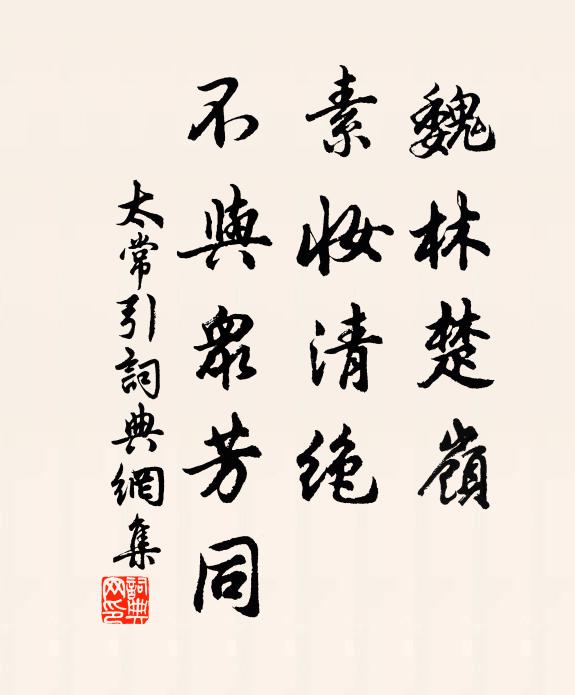 魏林楚嶺
素妝清絶
不與衆芳同
太常引詞典網集
詞典網印